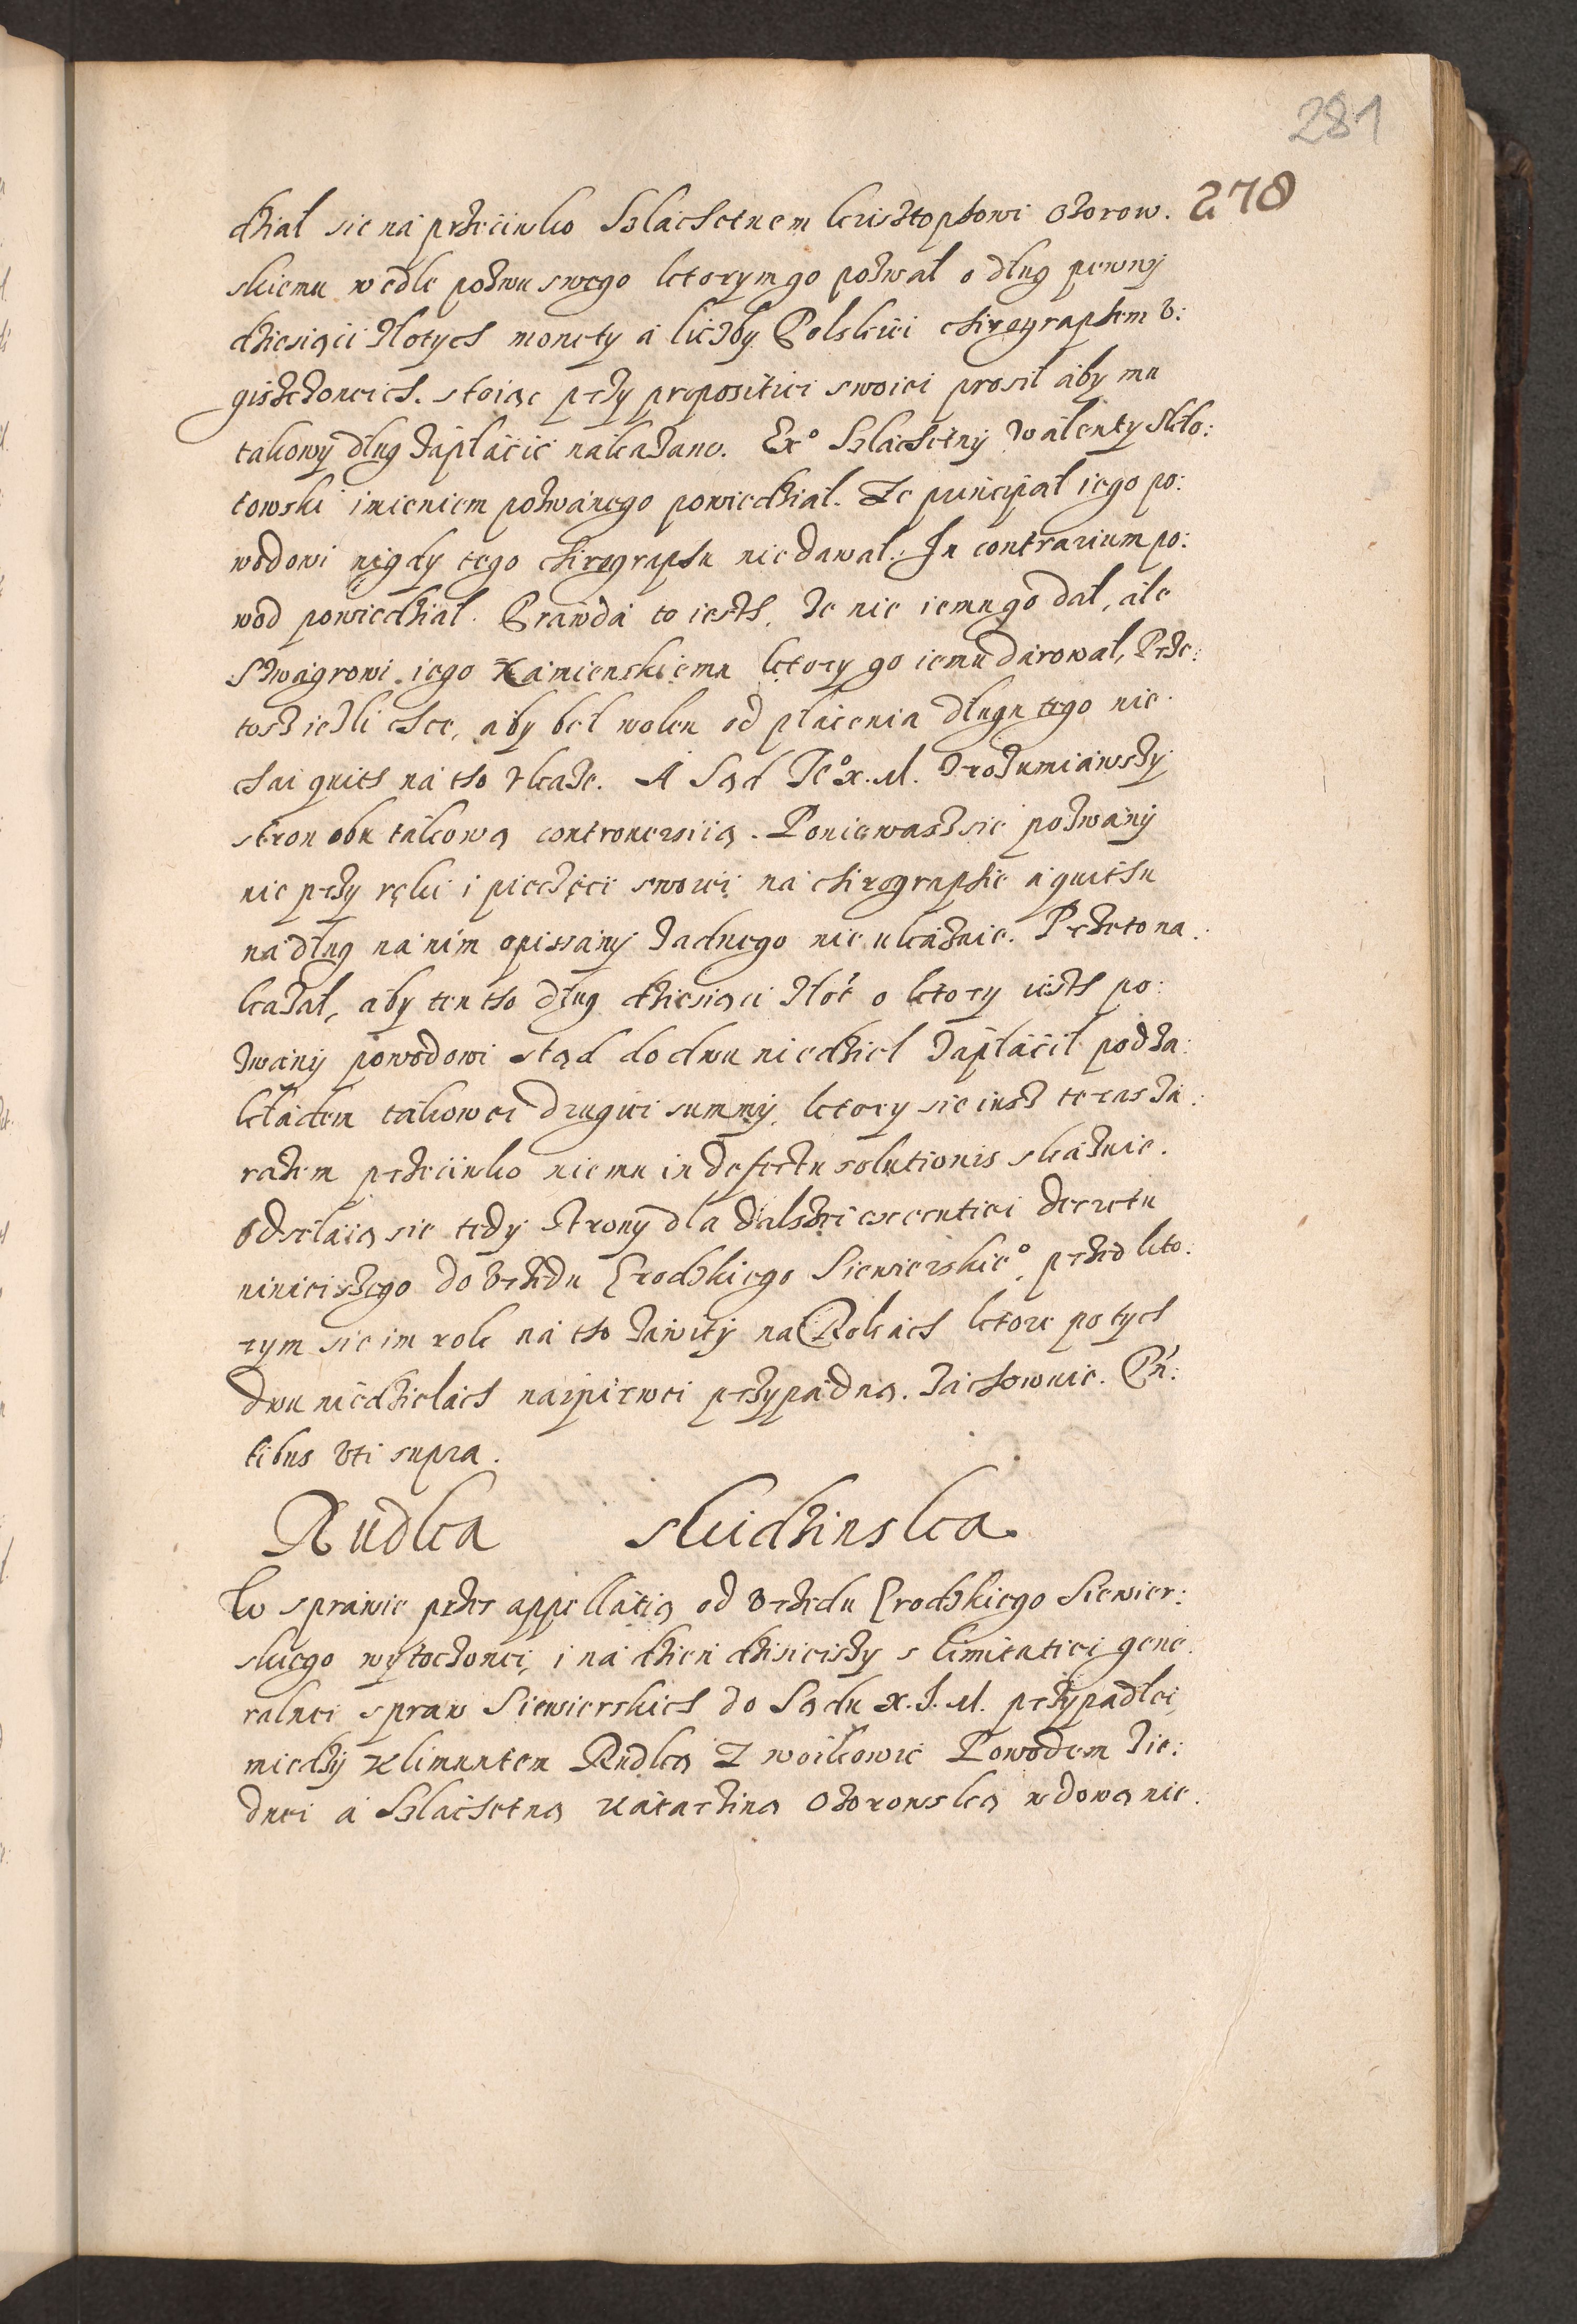 281
278
dział sie na przeciwko Szlachetnem krisztophowi Ożorow.
skiemu wedle pozwu swego ktorym go pozwał o dług pewny
dziesiąci złotych monety a liczby Polskiei chirographem v:
gisczoneich. stoiąc przy propositiei swoiei prosił aby mu
takowy dług zapłacic nakazano. Exº Szlachetny Walenty Skło:
towski imieniem pozwanego powiedział. Ze principał iego po:
wodowi nigdy tego chirographu nie dawał. In contrarium po:
wod powiedział. Prawda to iesth, że nie iemu go dał, ale
Szwagrowi iego Kamienskiemu ktory go iemu darował, Prze:
tosz iezli chce, aby beł wolen od płacenia długu tego nie
chai quith na tho vkaże. A Sąd Ieº X. M. zrozumiawszy
stron obu takową controuersiią. Poniewasz sie pozwany
nie przy ręki i pieczęci swoiei na chirographie a quithu
na dług na nim opissany żadnego nie ukazuie. Przeto na:
kazał, aby ten tho dług dziesiąci złot o ktory iesth po:
zwany powodowi stąd do dwu niedziel zapłacił pod za:
kładem takowei drugiei summy, ktory sie iusz teras za:
razem przeciwko niemu in defectu solutionis skazuie.
odsełaią sie tedy strony dla dalszei executiei decretu
ninieiszego do Vrzędu Grodzkiego Siewierskieº, przed kto:
rym sie im rok na tho zawity na Rokach ktore po tych
dwu niedzielach naipierwei przypadną. zachowuie. Pn:
tibus vti supra.
Rudka Skidzinska.
W sprawie przez appellatią od Vrzędu Grodzkiego Siewier:
skiego wytoczonei, i na dzien dzisieiszy s limitatiei gene:
ralnei spraw Siewierskich do Sądu X. J. M. przypadłei,
miedzy Klimuntem Rudką z woikowic Powodem zie:
dnei a Szlachetną Katarziną Ożorowską wdową nie.